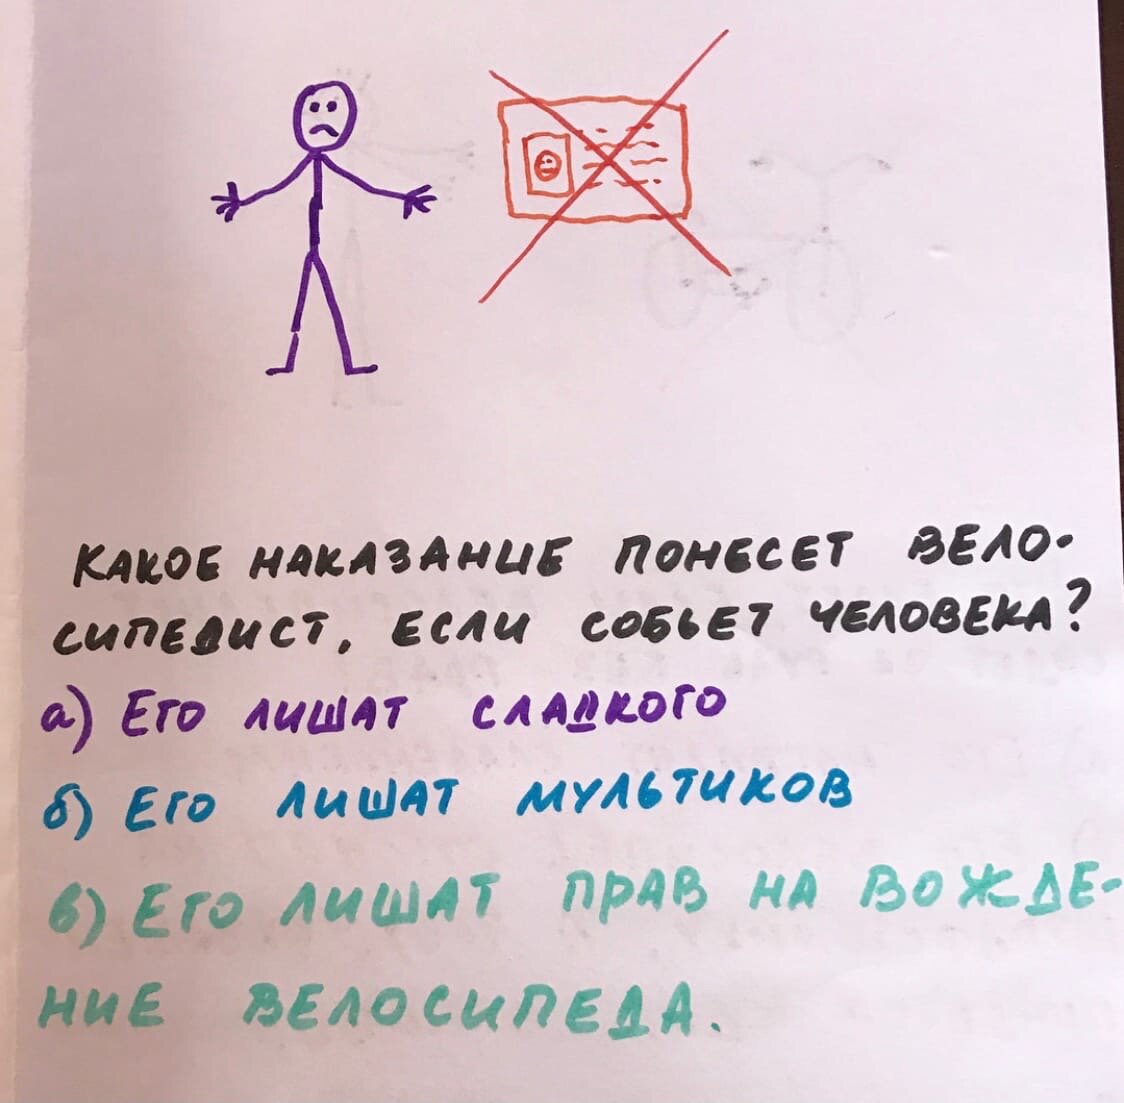 КАКОЕ НАКАЗАНИЕ ПОНЕСЕТ ВЕЛО-
СИПЕДИСТ, ЕСЛИ СОБЬЕТ ЧЕЛОВЕКА?
а) ЕГО ЛИШАТ СЛАДКОГО
б) ЕГО ЛИШАТ МУЛЬТИКОВ
в) ЕГО ЛИШАТ ПРАВ НА ВОЖДЕ-
НИЕ ВЕЛОСИПЕДА.